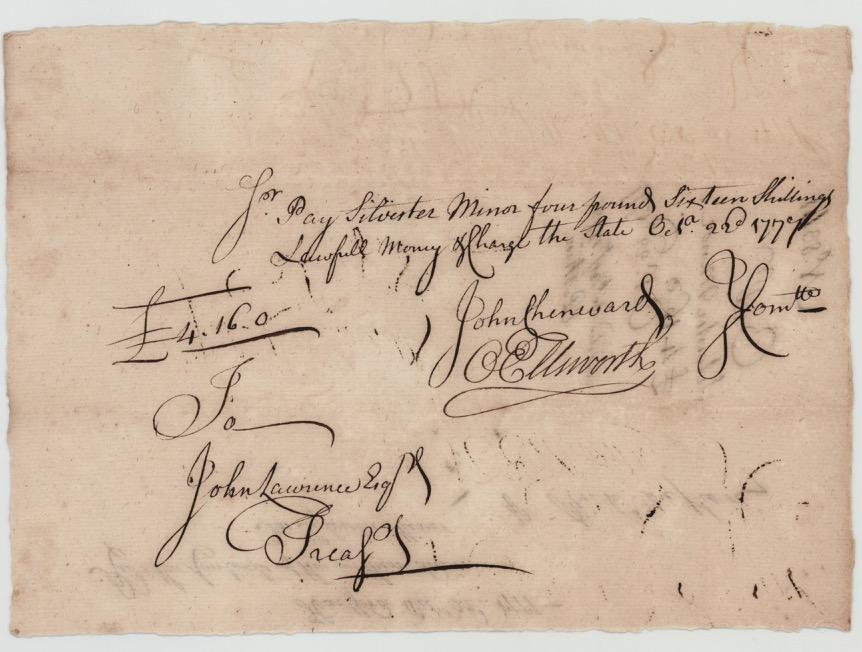 Sr. Pay Silvester Minor four pounds Sixteen Shillings
Lawfull Money & Charge the State Octr. 22d 1777
£4.16.0
John Chenevard
OEllsworth
Comtte
To
John Lawrence Esqr
Treasr